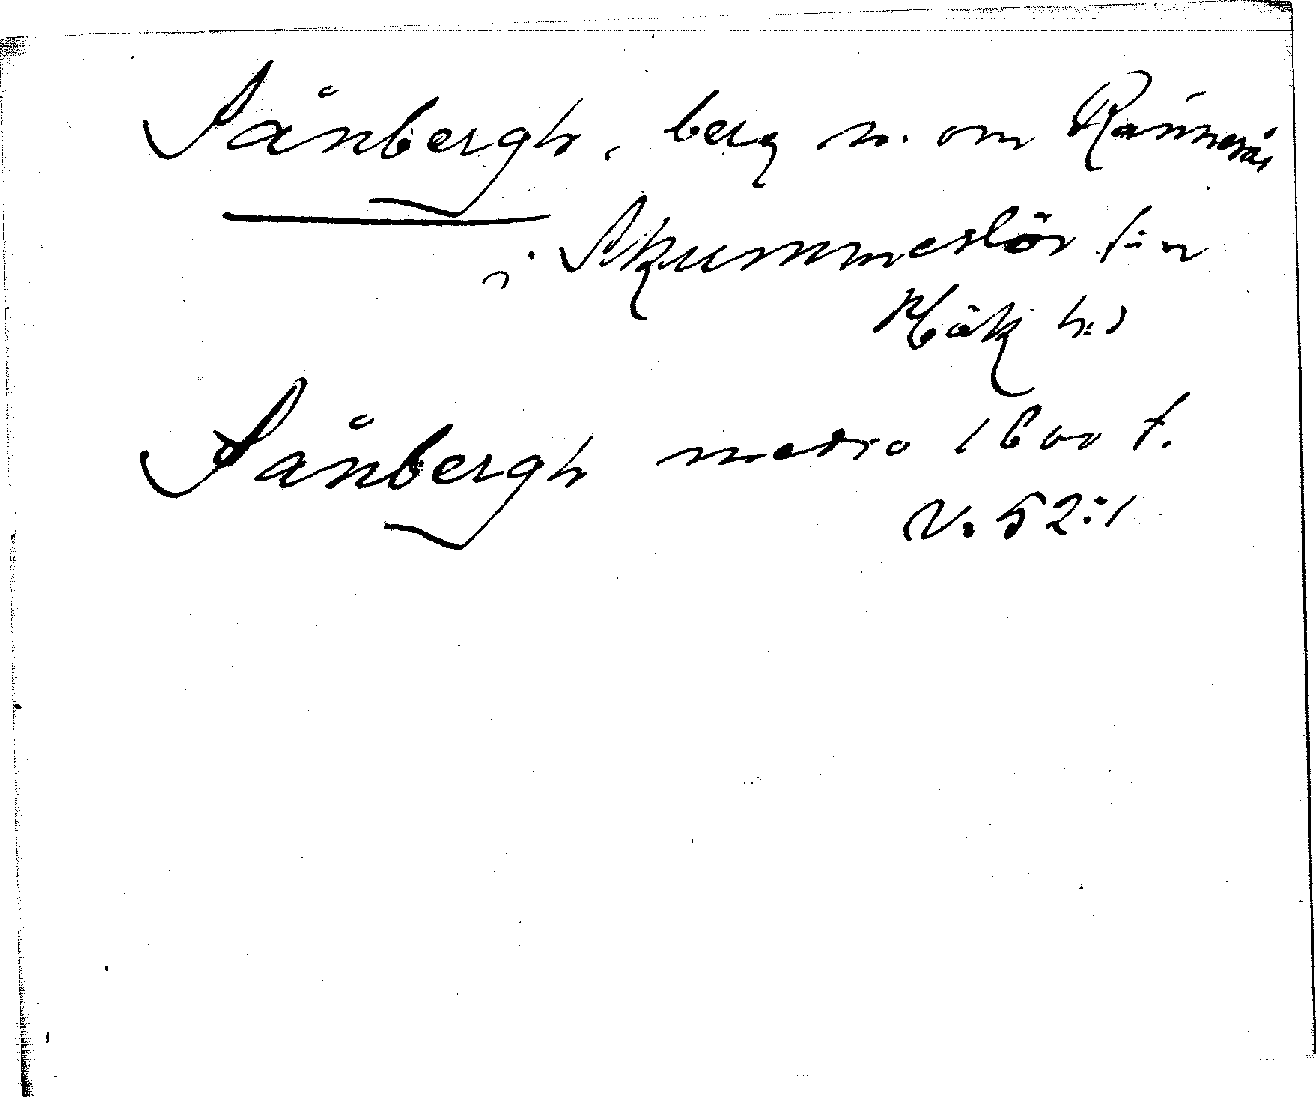 Sånbergh, berg n. om Rännesås
i Skummeslöv s:n
Hök h:d
Sånbergh medio 1600 t.
V. 52:1